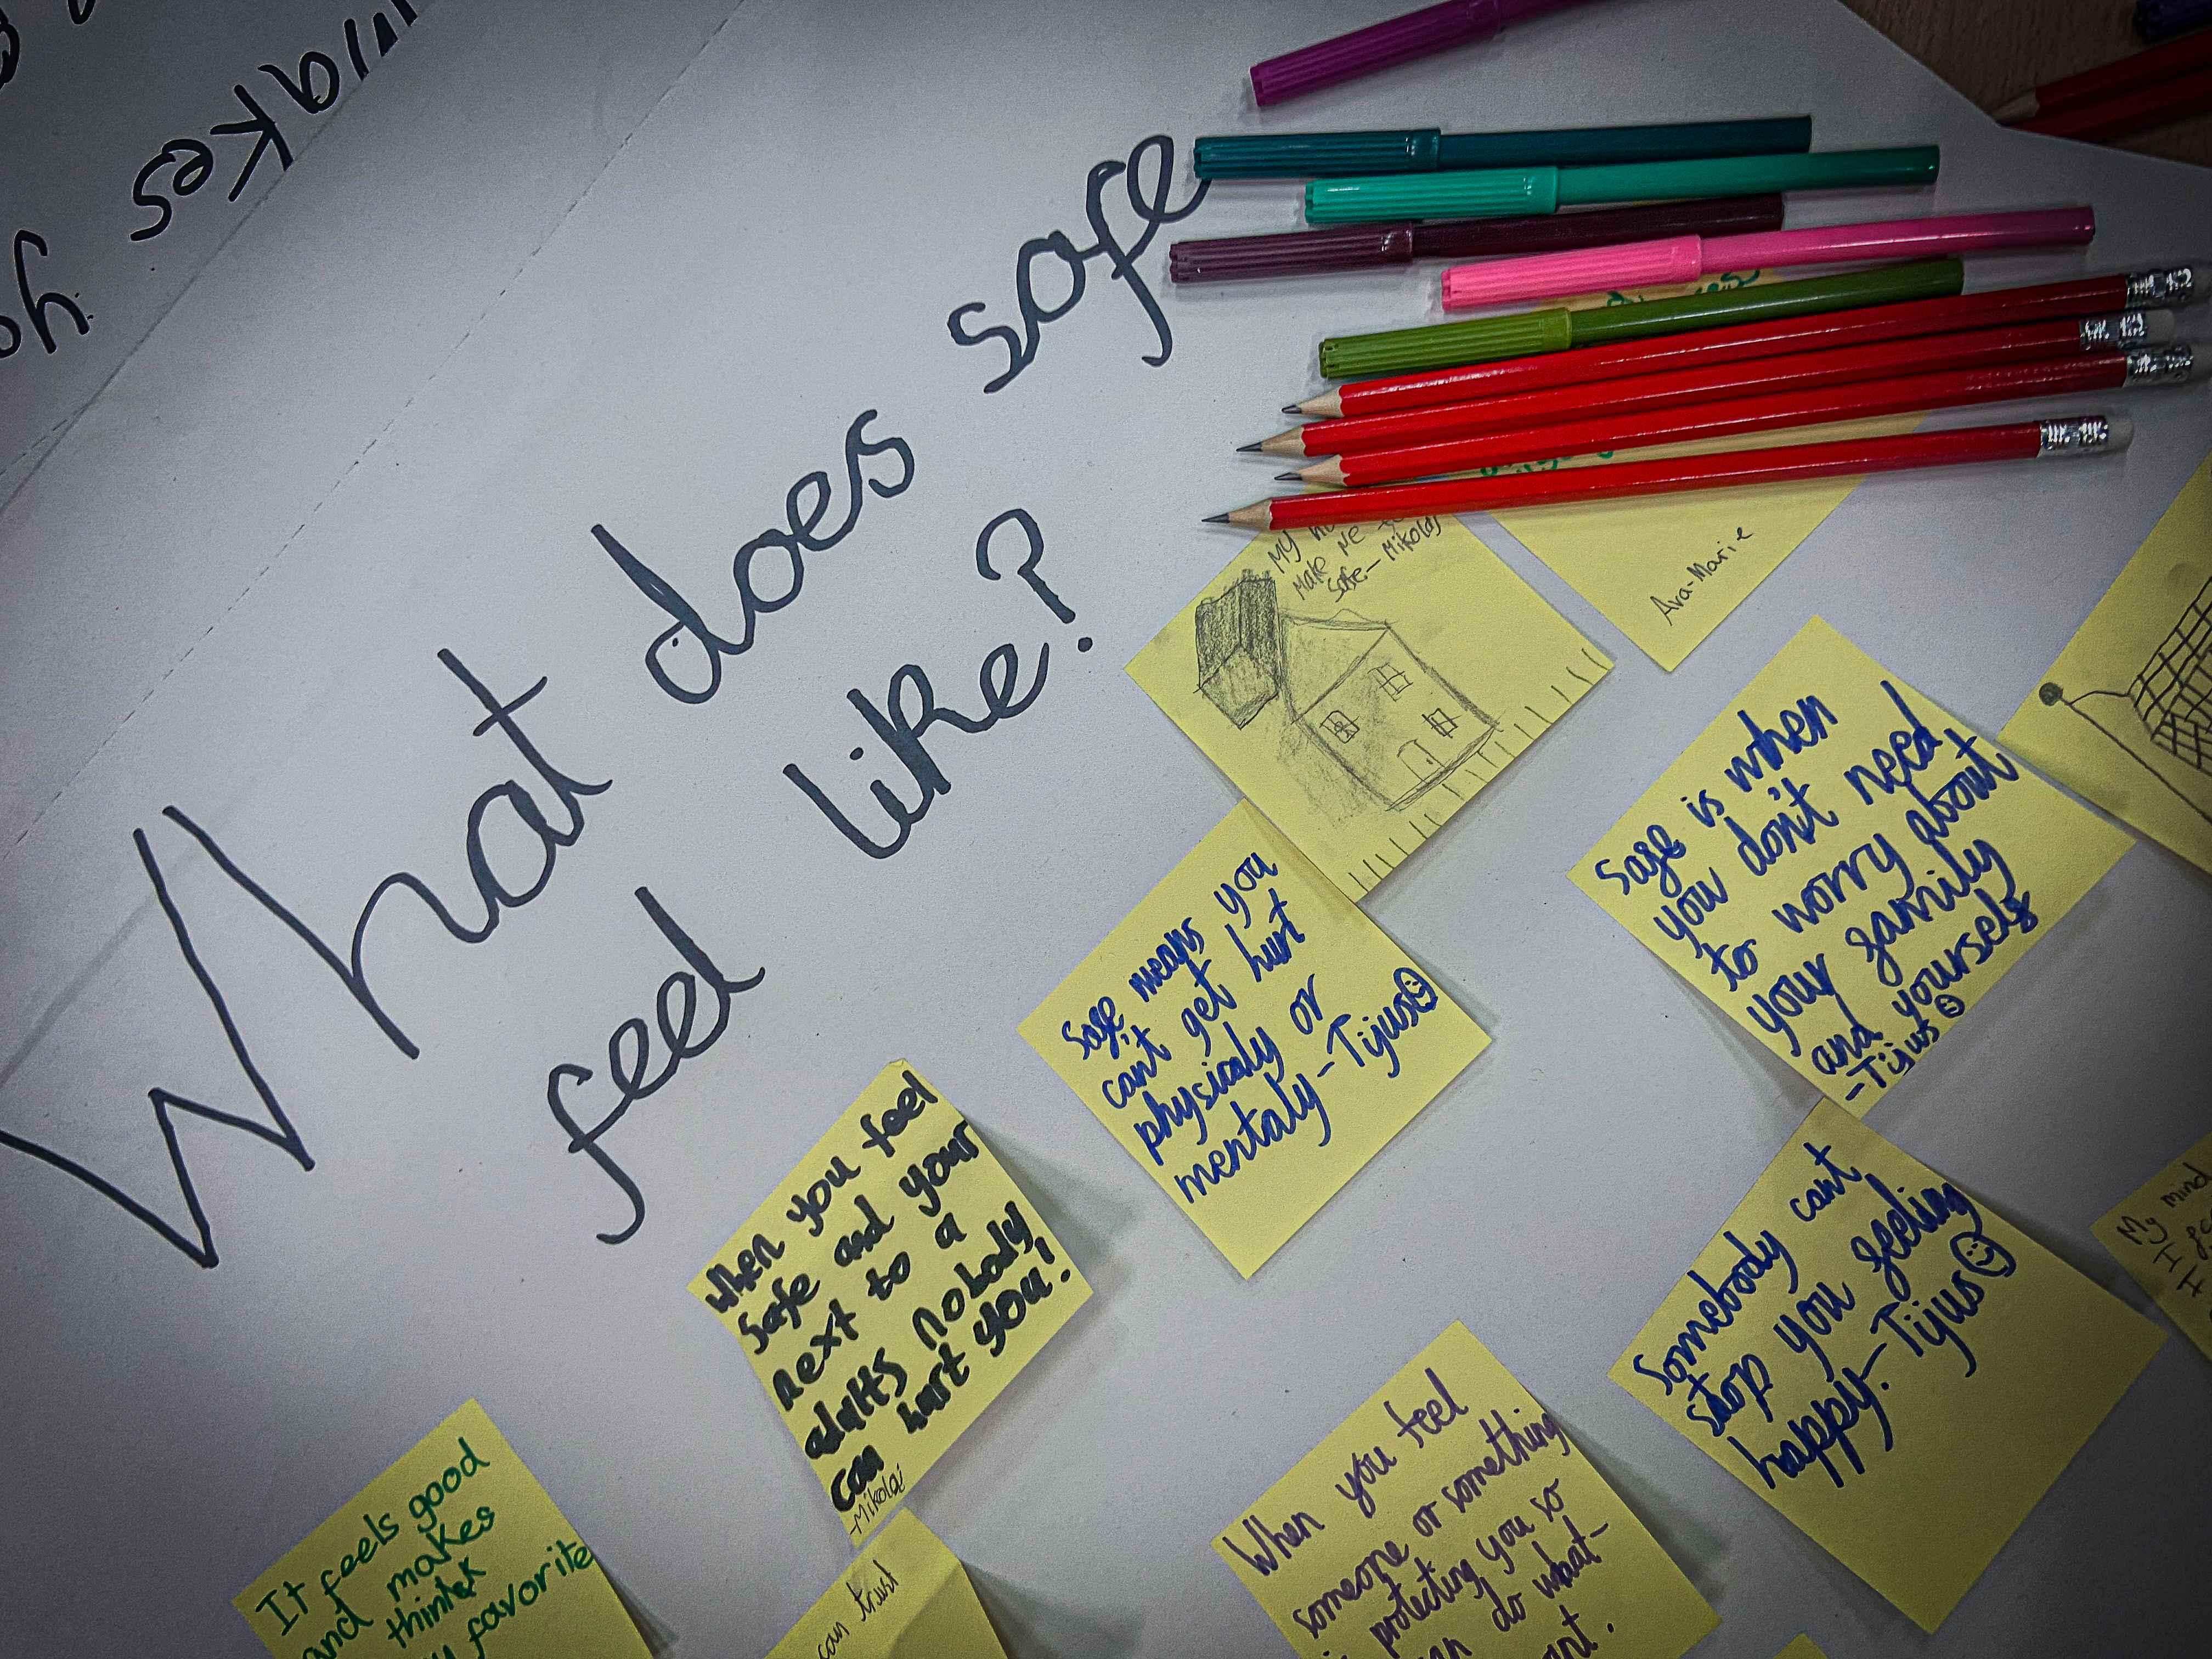 Makes
What does safe
feel like?
My
make me
safe. - Mikolaj
Ava-Marie
safe is when
you don't need
to worry about
your family
and yourself
-Tijus
safe means you
can't get hurt
physicaly or
mentaly - Tijus
when you feel
safe and your
next to a
adults nobody
can hurt you!
-Mikolaj
Somebody cant
stop you feeling
happy. - Tijus
My mind
I
I
When you feel
someone or something
is protecting you so
do what-
It feels good
and makes
think
favorite
can trust